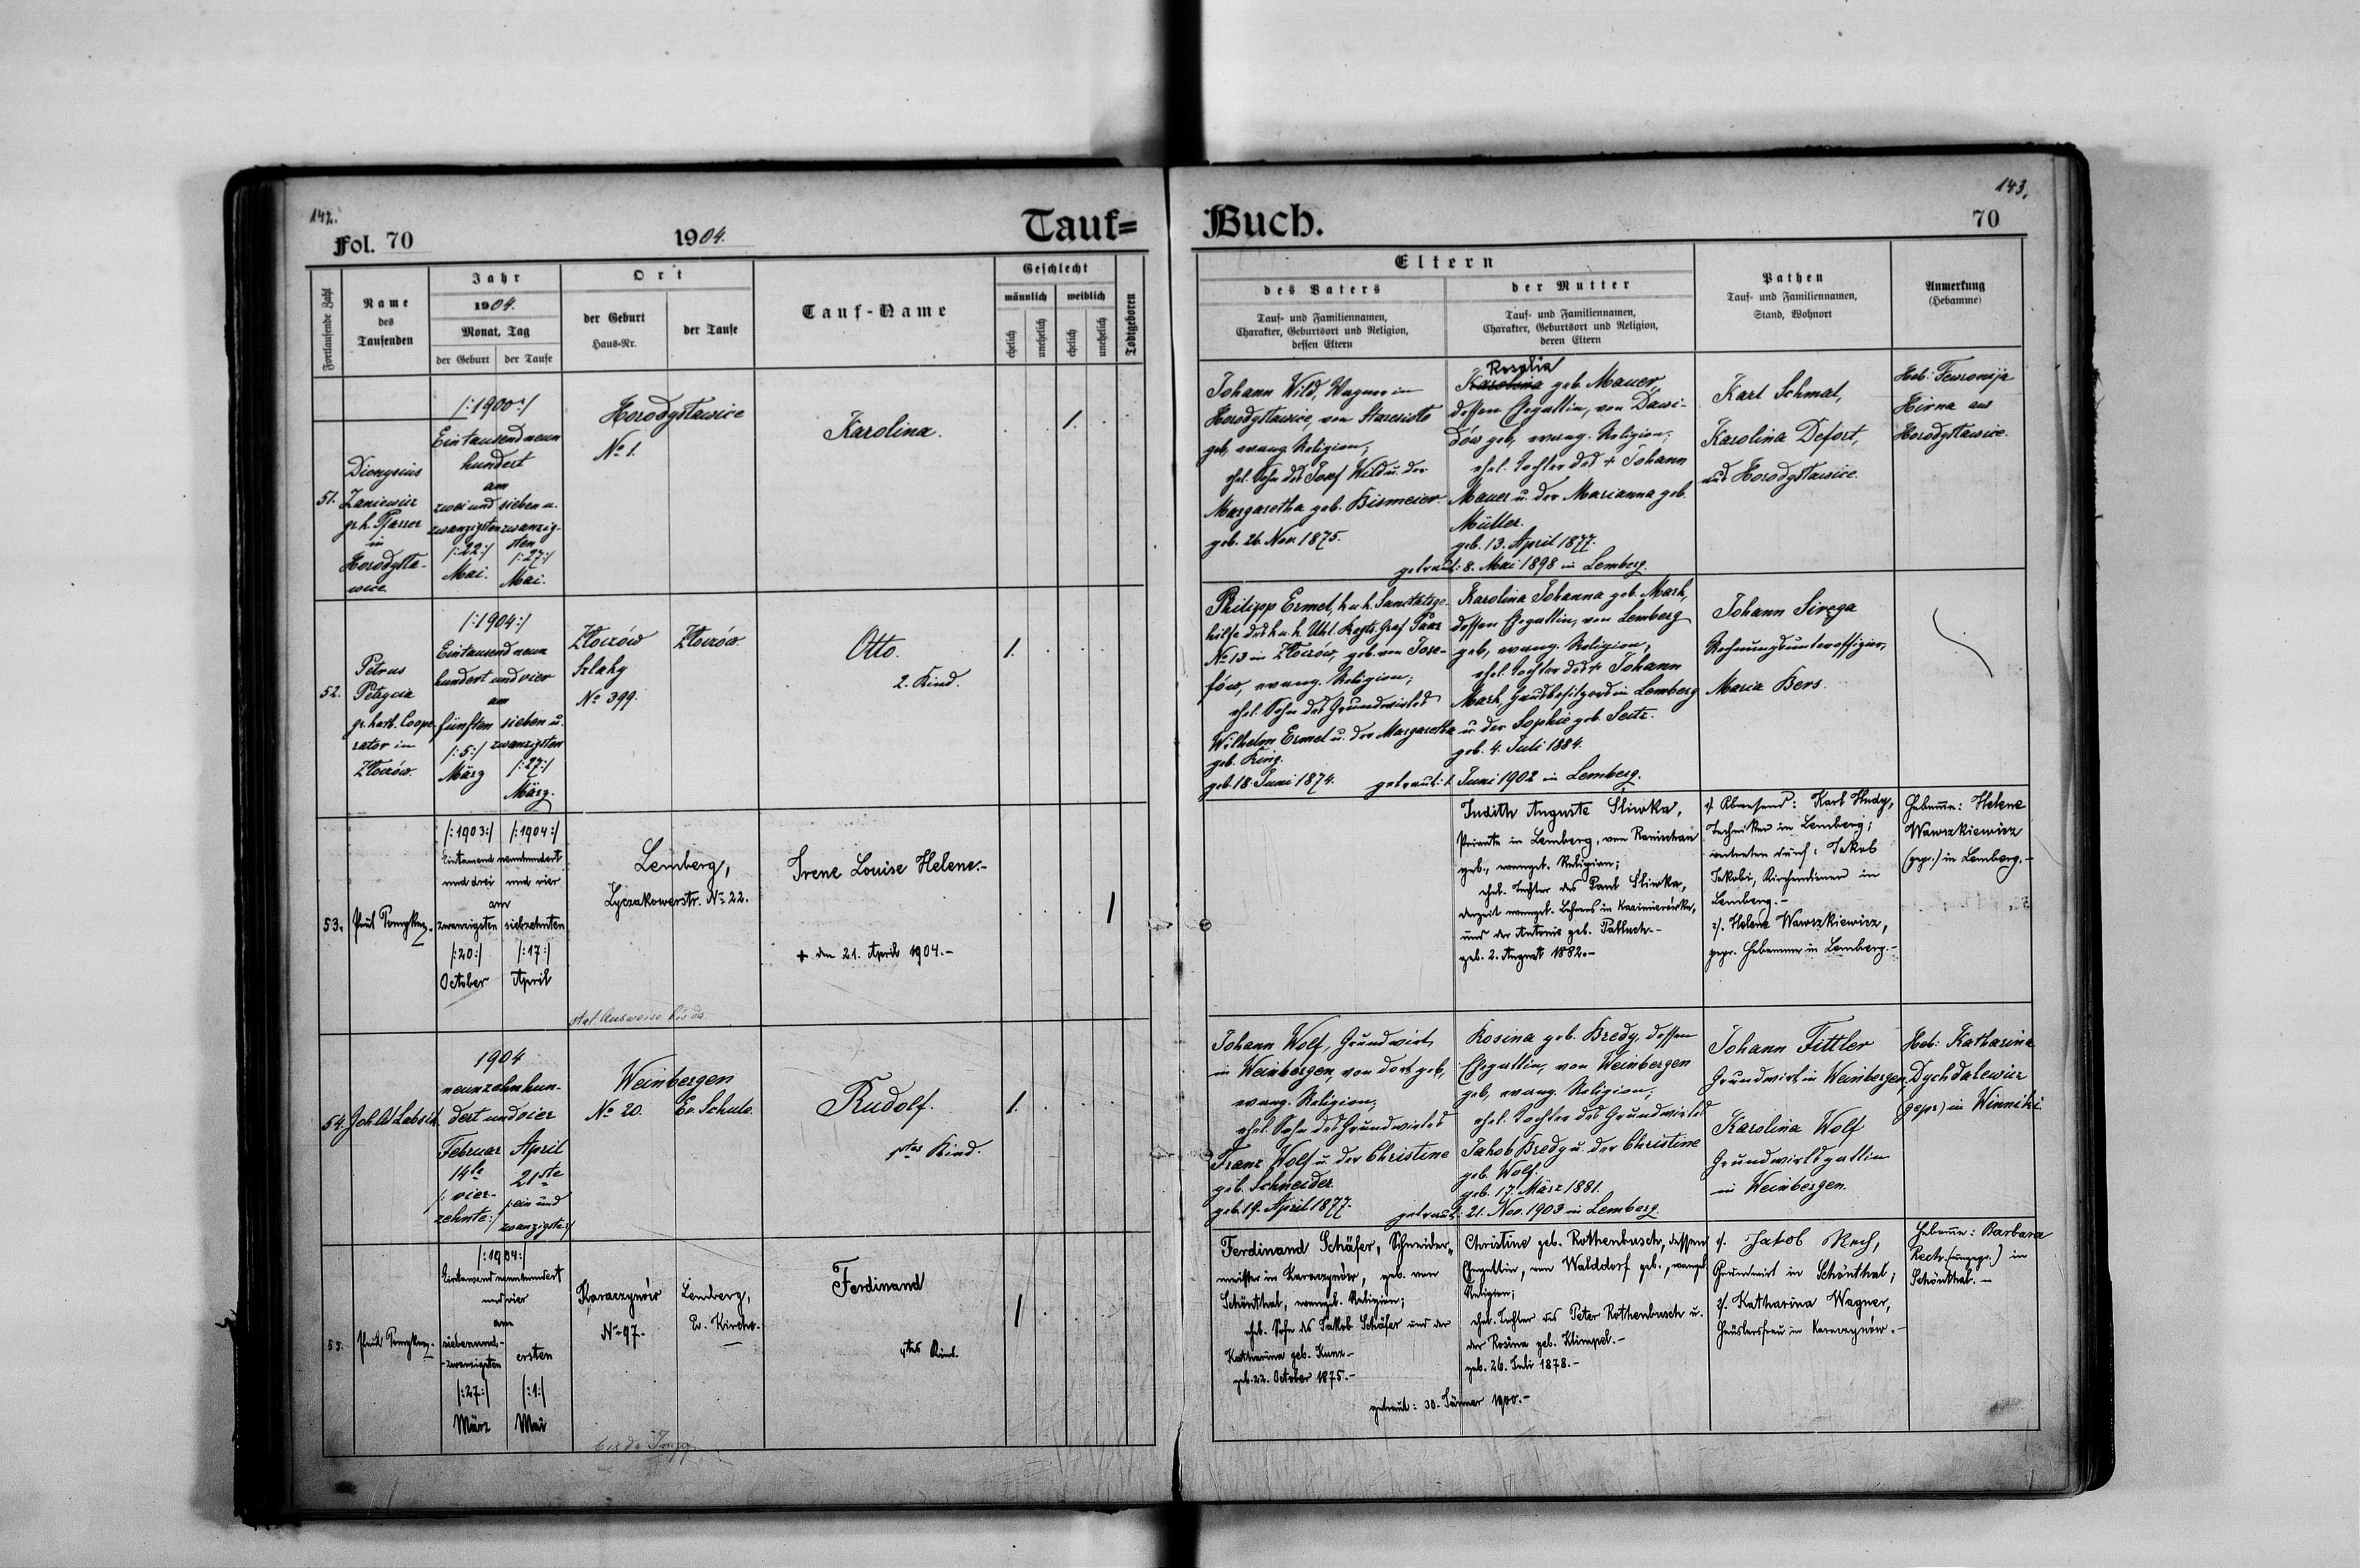 142.
Fol. 70
1904.
Tauf=
Fortlaufende Zahl
Name
des
Taufenden
Jahr
1904.
Monat, Tag
der Geburt
der Taufe
Ort
der Geburt
Haus-Nr.
der Taufe
Tauf-Name
Geschlecht
männlich
weiblich
ehelich
unehelich
ehelich
unehelich
Todtgeboren
51.
Dionysius
Zaniewicz
in
Horodysła-
wice
/:1900:/
Eintausend neun
hundert
am
zwei und
zwanzigsten
/:22:/
Mai.
sieben u.
zwanzig-
sten
/:27:/
Mai.
Horodysławice
No 1.
Karolina.
1.
52.
Petrus
gr. kath. Coope-
rator in
Złoczów.
/:1904:/
Eintausend neun
hundert und vier
am
fünften
/:5:/
März
sieben u.
zwanzigsten
/:27:/
März.
Złoczów
Szlaky
No 399.
Złoczów.
Otto.
2. Kind.
1.
53.
/:1903:/
/:1904:/
Eintausend neunhundert
und drei
und vier
am
zwanzigsten
/:20:/
October
siebzehnten
/:17:/
April
Lemberg,
Lyczakowerstr. No 22.
Irene Louise Helene.-
+ den 21. April 1904.-
1
stat Ausweise bis da
54.
1904
neunzehnhun-
dert und vier
Februar
14te
/: vier-
zehnte:/
April
21ste
/:ein und
zwanzigste:/
Weinbergen
No 20.
Ev. Schule.
Rudolf.
1tes Kind.
1.
55.
/:1904:/
Eintausend neunhundert
und vier
am
siebenund-
-zwanzigsten
/:27:/
März
ersten
/:1:/
Mai
Karaczynów
No 97.
Lemberg,
Ev. Kirche.
Ferdinand
4tes Kind.
1
143.
Buch.
70
Eltern
des Vaters
Tauf- und Familiennamen,
Charakter, Geburtsort und Religion,
dessen Eltern
der Mutter
Tauf- und Familiennamen,
Charakter, Geburtsort und Religion,
deren Eltern
Pathen
Tauf- und Familiennamen,
Stand, Wohnort
Anmerkung
(Hebamme)
Johann Wild, Wagner in
Horodysławice, von Staresioło
geb, evang. Religion;
ehel. Sohn des Josef Wild u. der
Margaretha geb. Bismeier.
geb. 26. Nov. 1875.
Rosalia
Karolina geb. Mauer,
dessen Ehegattin, von Dawi-
dów geb, evang. Religion;
ehel. Tochter des + Johann
Mauer u. der Marianna geb.
Müller.
geb. 13. April 1877.
getraut: 8. Mai 1898 in Lemberg.
Karl Schmal,
Karolina Defort,
aus Horodysławice.
Heb: Fewronija
Hirna aus
Horodysławice.
Philipp Ermel, k. u. k. Sanitätsge-
hilfe des k. u. k. Uhl. Regts. Graf Paar
No 13 in Złoczów, geb. von Jose-
fów, evang. Religion;
ehel. Sohn des Grundwirtes
Wilhelm Ermel u. der Margaretha
geb. King.
geb. 18. Juni 1874.
Karolina Johanna geb. Mark,
dessen Ehegattin, von Lemberg
geb, evang. Religion;
ehel. Tochter des + Johann
Mark, Hausbesitzers in Lemberg
u. der Sophie geb. Seitz.
geb. 4. Juli 1884.
getraut: 1. Juni 1902 in Lemberg.
Johann Siręga
Rechnungsunteroffizier,
Maria Bers.
Judith Auguste Śliwka,
Private in Lemberg, von Ranischau
geb., evangel. Religion;
ehel. Tochter des Paul Śliwka,
derzeit evangel. Lehrers in Kazimierówka,
und der Antonie geb. Palluch.-
geb. 2. August 1882.-
1. Abwesend: Karl Hudy,
Techniker in Lemberg;
vertreten durch: Jakob
Jakobi, Kirchendiener in
Lemberg.-
2/. Helene Wawszkiewicz,
gepr. Hebamme in Lemberg.-
Hebamme: Helene
Wawszkiewicz
(gepr.) in Lemberg.-
Johann Wolf, Grundwirt
in Weinbergen, von dort geb,
evang. Religion;
ehel. Sohn des Grundwirtes
Franz Wolf u. der Christine
geb. Schneider.
geb. 19. April 1877.
Rosina geb. Bredy, dessen
Ehegattin, von Weinbergen
geb, evang. Religion;
ehel. Tochter des Grundwirtes
Jakob Bredy u. der Christine
geb. Wolf.
geb. 17. März 1881.
getraut: 21. Nov. 1903 in Lemberg.
Johann Fittler
Grundwirt in Weinbergen,
Karolina Wolf
Grundwirtsgattin
in Weinbergen.
Heb: Katharina
Dychdalewicz
(gepr.) in Winniki.
Ferdinand Schäfer, Schneider-
meister in Karaczynów, geb. von
Schönthal, evangel. Religion;
ehel. Sohn des Jakob Schäfer und der
Katharina geb. Kunz.-
geb. 22. October 1875.-
Christine geb. Rothenbusch, dessen
Ehegattin, von Walddorf geb., evangel.
Religion;
ehel. Tochter des Peter Rothenbusch u.
der Rosina geb. Klimpel.-
geb. 26. Juli 1878.-
getraut: 30. Jänner 1900.-
1. Jakob Mech,
Grundwirt in Schönthal;
2/. Katharina Wagner,
Häuslersfrau in Karaczynów.-
Hebamme: Barbara
Rech (ungepr.) in
Schönthal.-